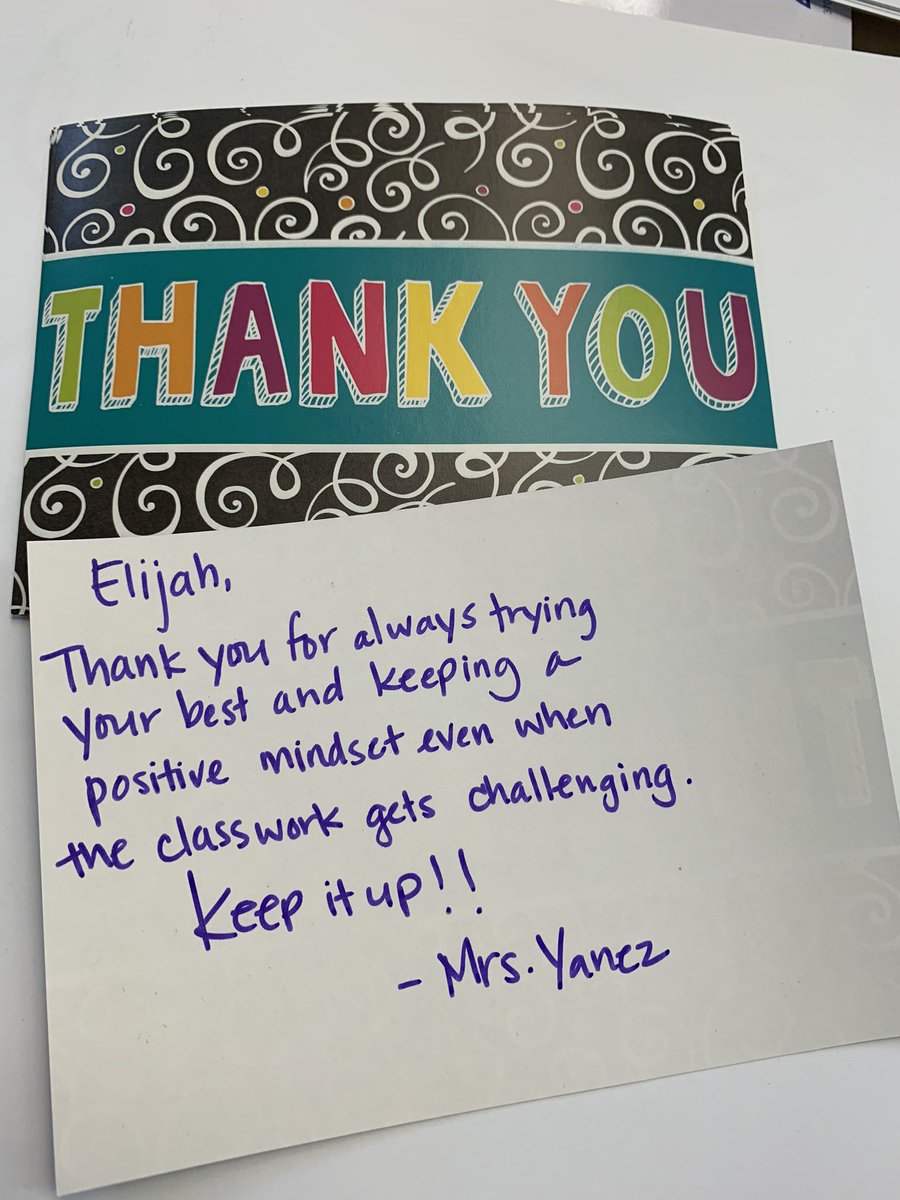 THANK YOU
Elijah,
Thank you for always trying
your best and keeping a
positive mindset even when
the classwork gets challenging.
Keep it up!!
- Mrs. Yanez